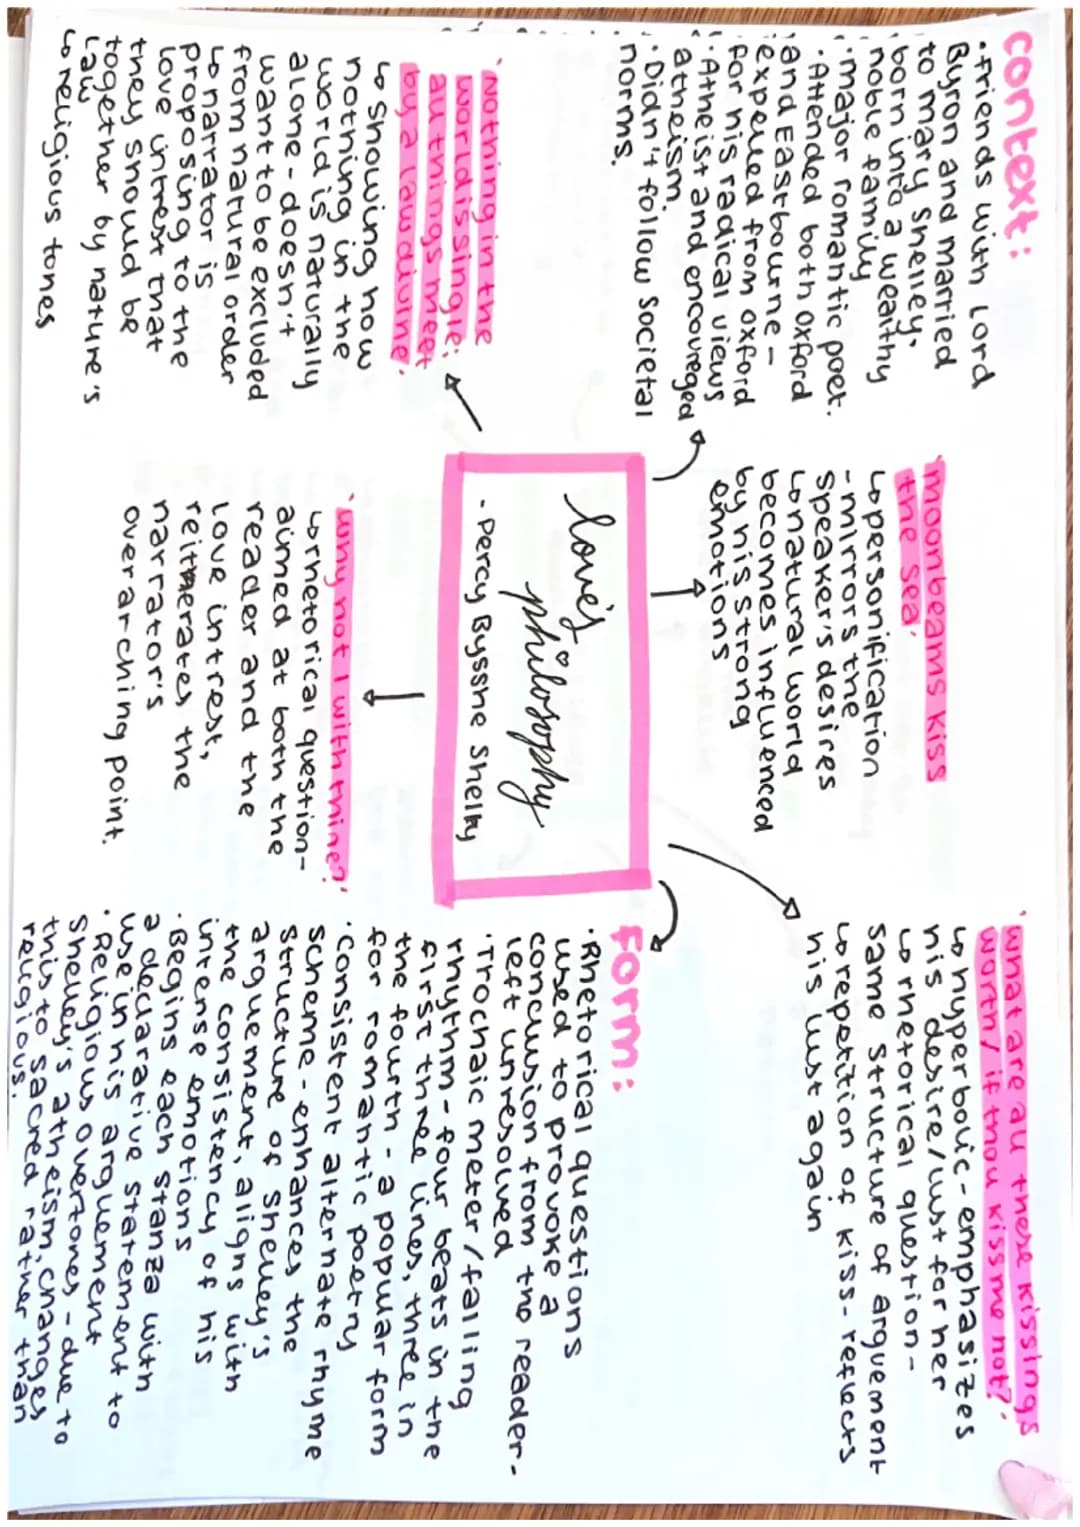 context:
• friends with Lord
Byron and married
to Mary Shelley.
born into a wealthy
noble family
• major romantic poet.
• Attended both Oxford
and Eastbourne -
expelled from Oxford
for his radical views
• Atheist and encoureged
atheism.
• Didn't follow societal
norms.
'moonbeams kiss
the sea'
↳ personification
- mirrors the
speaker's desires
↳ natural world
becomes influenced
by his strong
emotions
'what are all these kissings
worth / if thou kiss me not?'
↳ hyperbolic - emphasizes
his desire/lust for her
↳ rhetorical question -
same structure of arguement
↳ repetition of kiss - reflects
his lust again
love's
philosophy
- Percy Bysshe Shelly
'Nothing in the
world is single;
all things meet
by a law divine.
↳ Showing how
nothing in the
world is naturally
alone - doesn't
want to be excluded
from natural order
↳ narrator is
proposing to the
love intrest that
they should be
together by nature's
law
↳ religious tones
'why not I with thine?'
↳ rhetorical question -
aimed at both the
reader and the
love intrest,
reitherates the
narrator's
overarching point.
Form:
• Rhetorical questions
used to provoke a
conclusion from the reader -
left unresolved
• Trochaic meter / falling
rhythm - four beats in the
first three lines, three in
the fourth - a popular form
for romantic poetry
• Consistent alternate rhyme
scheme - enhances the
structure of Shelley's
arguement, aligns with
the consistency of his
intense emotions
• Begins each stanza with
a declarative statement to
use in his arguement
• Religious overtones - due to
Shelley's atheism, changes
this to sacred rather than
religious.